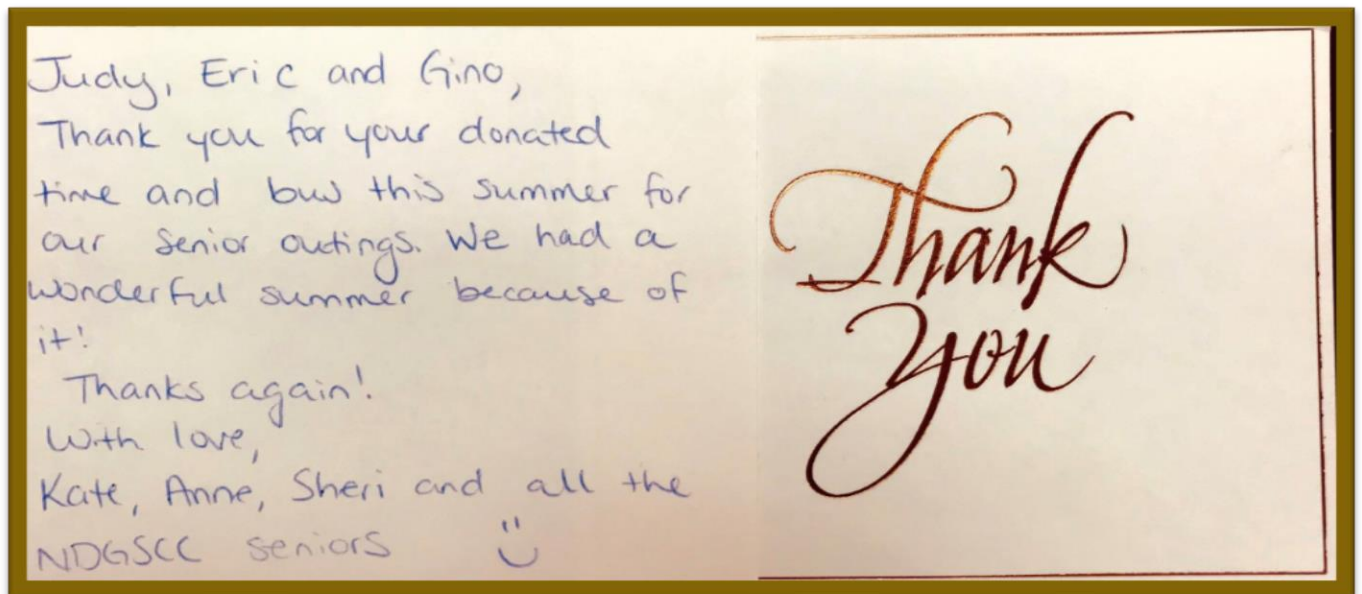 Judy, Eric and Gino,
Thank you for your donated
time and bus this summer for
our senior outings. We had a
wonderful summer because of
it!
Thanks again!
With love,
Kate, Anne, Sheri and all the
NDGSCC seniors
Thank
you